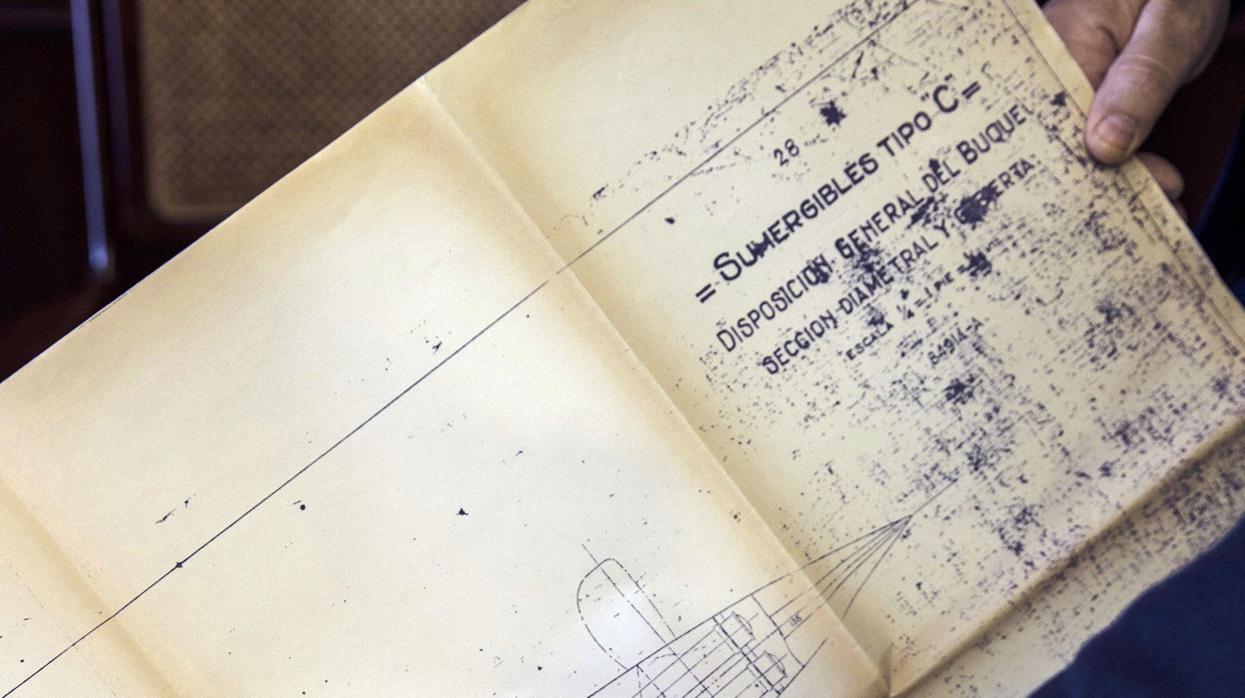 28
= SUMERGIBLES TIPO "C" =
DISPOSICION GENERAL DEL BUQUE
SECCION DIAMETRAL Y CUBIERTA
ESCALA ¼ = 1 PIE
84914-A